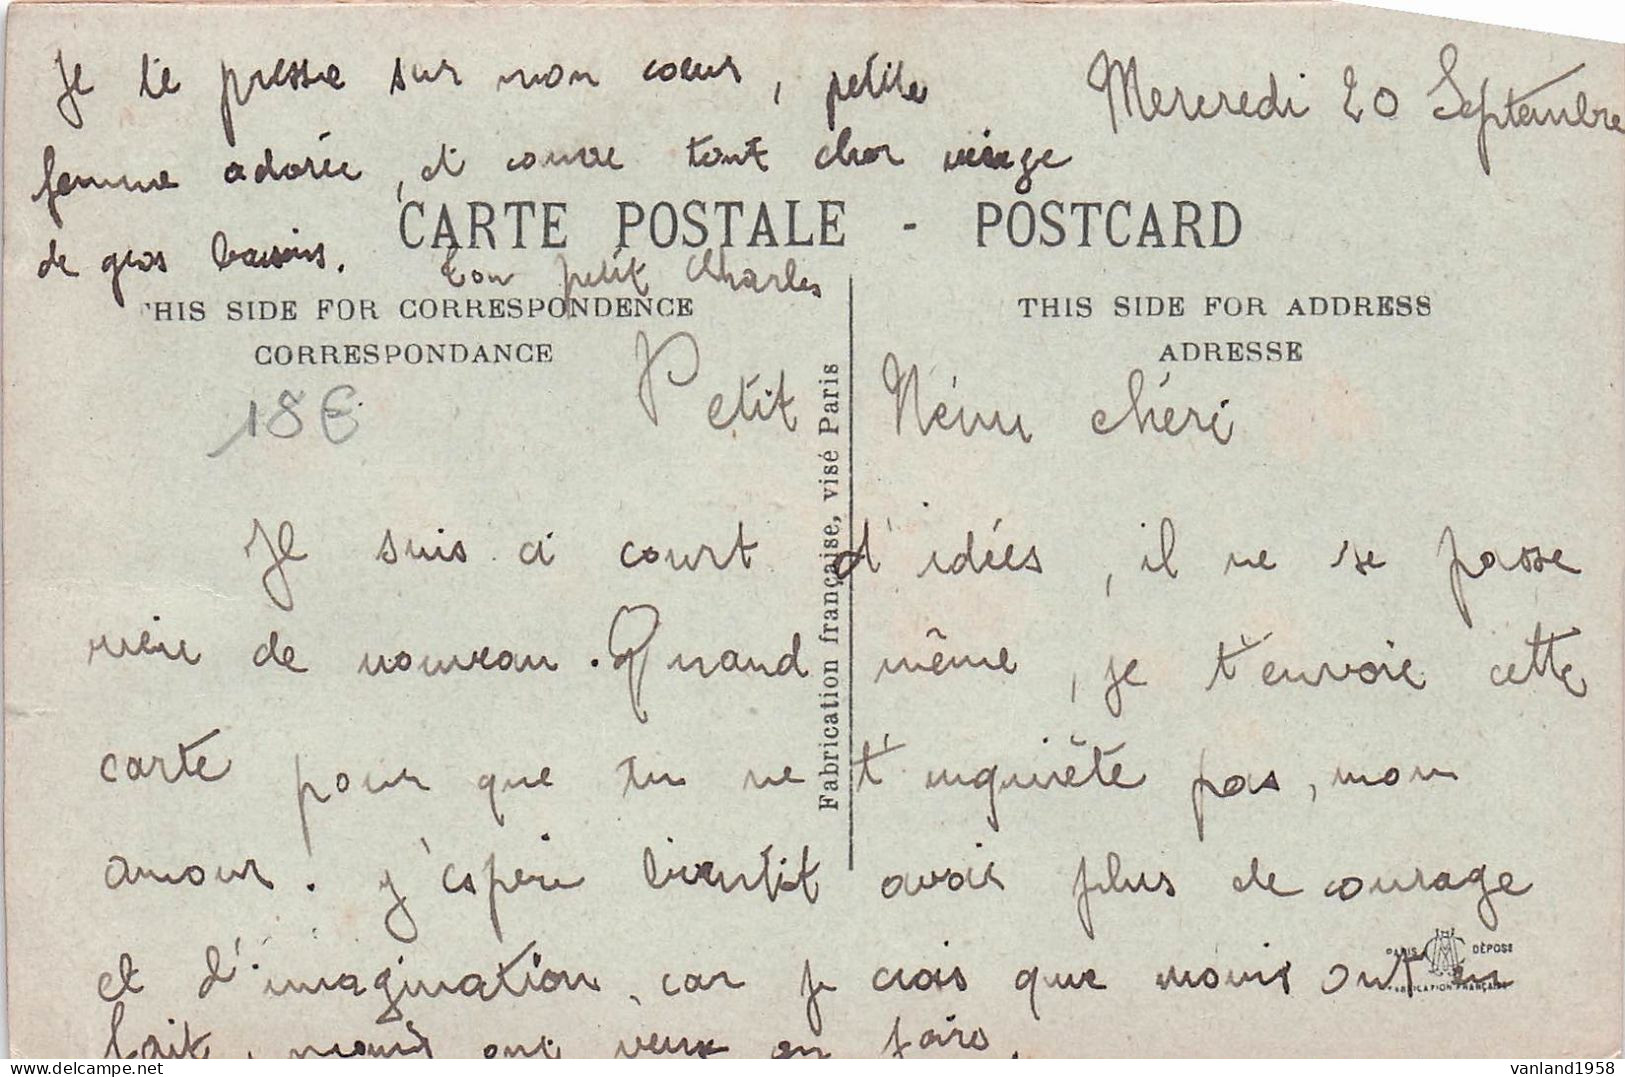 Mercredi 20 Septembre
Je te presse sur mon coeur, petite
femme adorée, et couvre tout cher visage
de gros baisers. Ton petit Charles
CARTE POSTALE - POSTCARD
THIS SIDE FOR CORRESPONDENCE
CORRESPONDANCE
THIS SIDE FOR ADDRESS
ADRESSE
18€
Fabrication française, visé Paris
Petit Nénu chéri
Je suis à court d'idées, il ne se passe
rien de nouveau. Quand même, je t'envoie cette
carte pour que tu ne t'inquiète pas, mon
amour. J'espère bientôt avoir plus de courage
et d'imagination, car je crois que moins on en
PARIS DÉPOSÉ
FABRICATION FRANÇAISE
fait, moins on veux en faire.
vanland1958